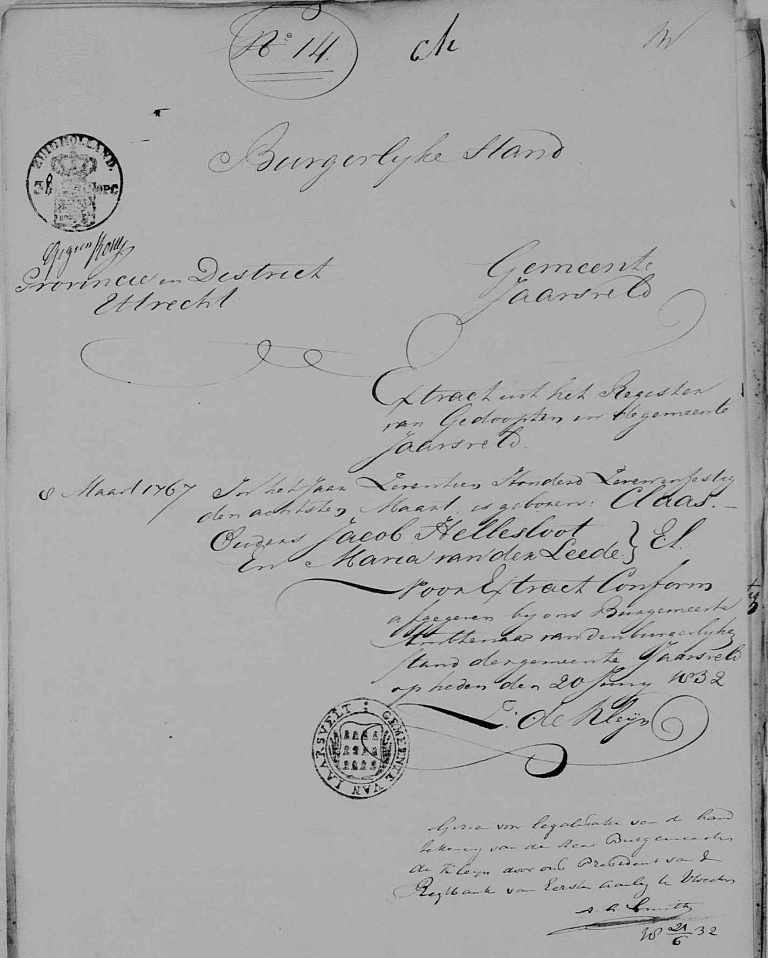 No 14.
Burgerlyke Stand
ZUID HOLLAND.
Provincie en District
Utrecht
Gemeente
Jaarsveld
Extract uit het Register
van Gedoopten in de gemeente
Jaarsveld.
8 Maart 1767
In het Jaar Zeventien Honderd Zevenenzestig
den achtsten Maart is geboren: Claas.
Ouders Jacob Hellesloot
En Maria van der Leede } El.
Voor Extract Conform
afgegeven by ons Burgemeester
Ambtenaar van den burgerlyke
stand der gemeente Jaarsveld
op heden den 20 Juny 1832
de Kleyn
GEMEENTE VAN JAARSVELT
Gezien voor legalisatie van de hand
tekening van den Heer Burgemeester
de Kleyn door ons President van de
Regtbank van Eersten Aanleg te
18 21/6 32